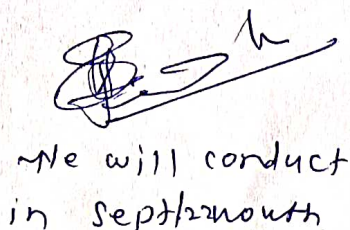 We will conduct
in Sept/22 month